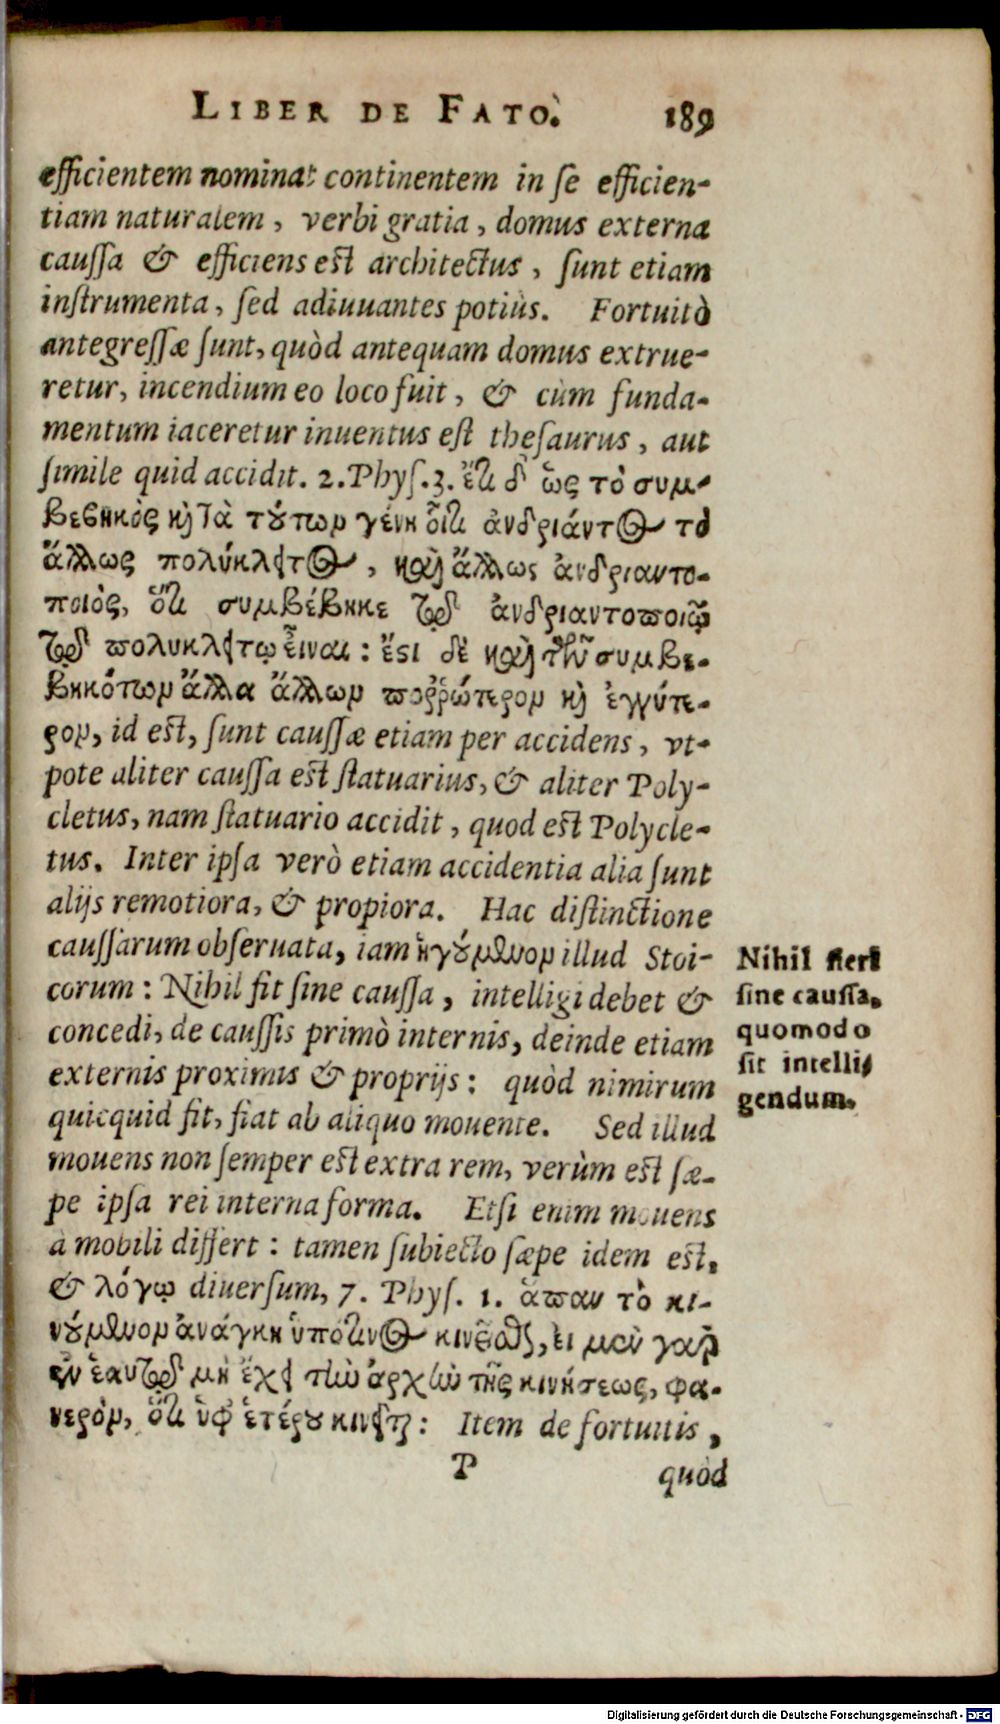 LIBER DE FATO. 189
efficientem nominat continentem in se efficien-
tiam naturalem, verbi gratia, domus externa
caussa & efficiens est architectus, sunt etiam
instrumenta, sed adiuuantes potiùs. Fortuitò
antegressæ sunt, quòd antequam domus extrue-
retur, incendium eo loco fuit, & cùm funda-
mentum iaceretur inuentus est thesaurus, aut
simile quid accidit. 2. Phys. 3. ἔτι δ' ὡς τὸ συμ-
βεβηκὸς κὶ τὰ τούτων γένη οἷον ἀνδριάντος τὸ
ἄλλως πολύκλειτος, καὶ ἄλλως ἀνδριαντο-
ποιὸς, ὅτι συμβέβηκε τῷ ἀνδριαντοποιῷ
τῷ πολυκλείτῳ εἶναι: ἔστι δὲ καὶ τῶν συμβε-
βηκότων ἄλλα ἄλλων ποῤῥώτερον κὶ ἐγγύτε-
ρον, id est, sunt caussæ etiam per accidens, vt-
pote aliter caussa est statuarius, & aliter Poly-
cletus, nam statuario accidit, quod est Polycle-
tus. Inter ipsa verò etiam accidentia alia sunt
alijs remotiora, & propiora. Hac distinctione
caussarum obseruata, iam ἡγούμενον illud Stoi-
corum: Nihil fit sine caussa, intelligi debet &
concedi, de caussis primò internis, deinde etiam
externis proximis & proprijs: quòd nimirum
quicquid fit, fiat ab aliquo mouente. Sed illud
mouens non semper est extra rem, verùm est sæ-
pe ipsa rei interna forma. Etsi enim mouens
à mobili differt: tamen subiecto sæpe idem est,
& λόγῳ diuersum, 7. Phys. 1. ἅπαν τὸ κι-
νούμενον ἀνάγκη ὑπό τινος κινεῖσθαι, εἰ μὲν γὰρ
ἐν ἑαυτῷ μὴ ἔχει τὴν ἀρχὴν τῆς κινήσεως, φα-
νερὸν, ὅτι ὑφ' ἑτέρου κινεῖται: Item de fortuitis,
P quòd
Nihil fieri
sine caussa,
quomodo
sit intelli-
gendum.
Digitalisierung gefördert durch die Deutsche Forschungsgemeinschaft - DFG